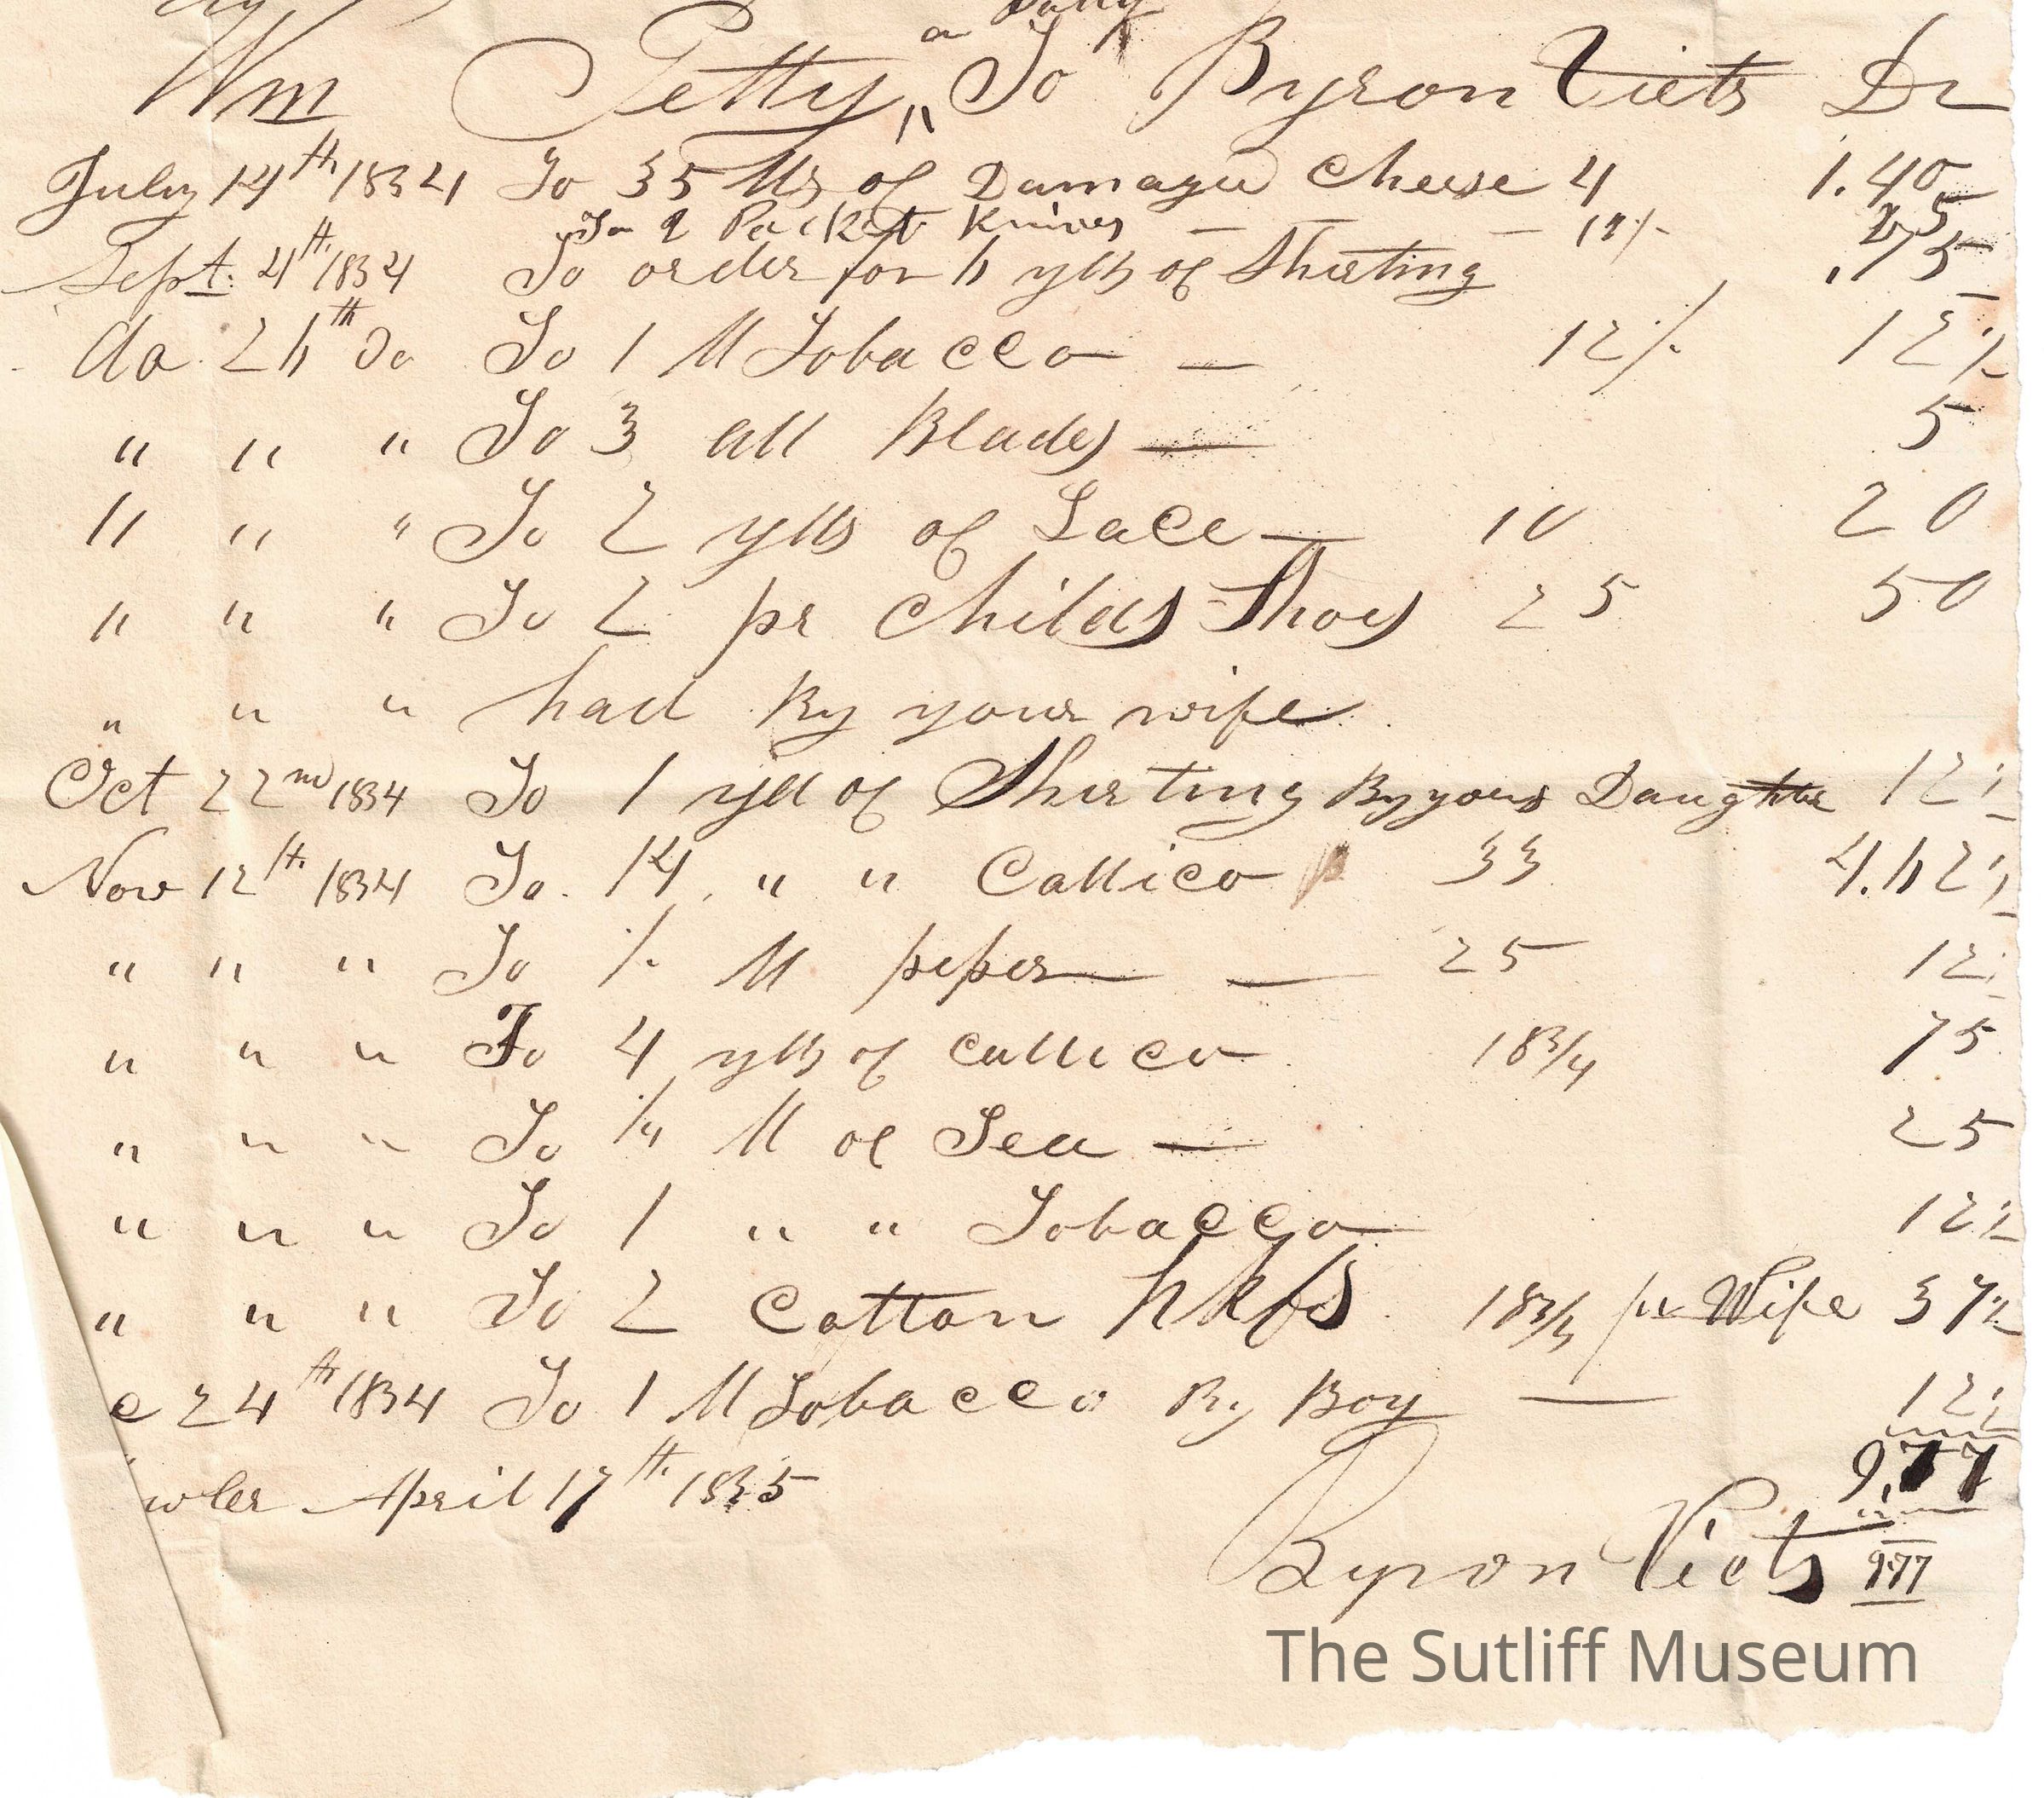 Wm Petty, To Byron Viets Dr
July 14th 1834 To 35 lbs of Damaged Cheese 4 1.40
To 2 Pocket Knives — — — 12½ 25
Sept. 4th 1834 To order for 6 yds of Shirting .75
do 26th do To 1 lb Tobacco — 12½ 12½
" " " To 3 all Blades — 5
" " " To 2 yds of Lace — 10 20
" " " To 2 pr Childs Shoes 25 50
" " " had By your wife
Oct 22nd 1834 To 1 yd of Shirting By your Daughter 12½
Nov 12th 1834 To 14 " " Callico 33 4.62½
" " " To ½ lb peper — 25 12½
" " " To 4 yds of Callico 18¾ 75
" " " To ¼ lb of Tea — 25
" " " To 1 " " Tobacco 12½
" " " To 2 Cotton hkfs 18¾ pr Wife 37½
c 24th 1834 To 1 lb Tobacco By Boy — 12½
9.77
wler April 17th 1835
Byron Viets 9.77
The Sutliff Museum